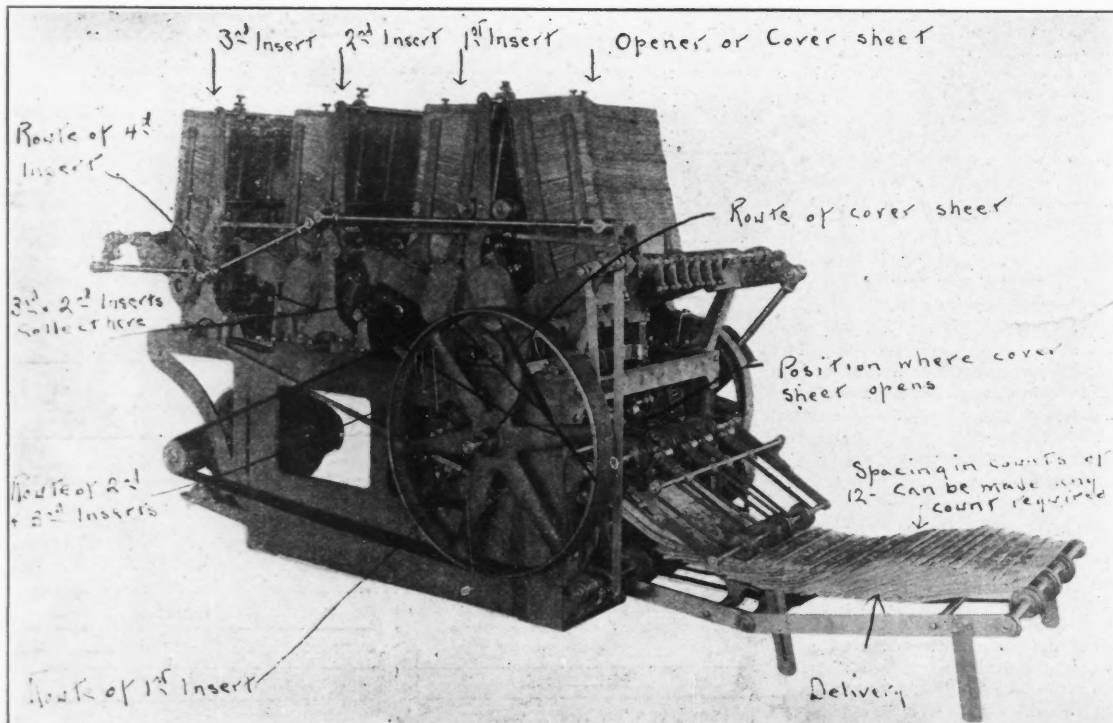 3rd Insert
2nd Insert
1st Insert
Opener or Cover sheet
Route of 4th
Insert
Route of cover sheet
3rd + 2nd Inserts
Collect here
Position where cover
sheet opens
Spacing in counts of
12 - Can be made any
count required
Route of 2nd
+ 3rd Inserts
Route of 1st Insert
Delivery